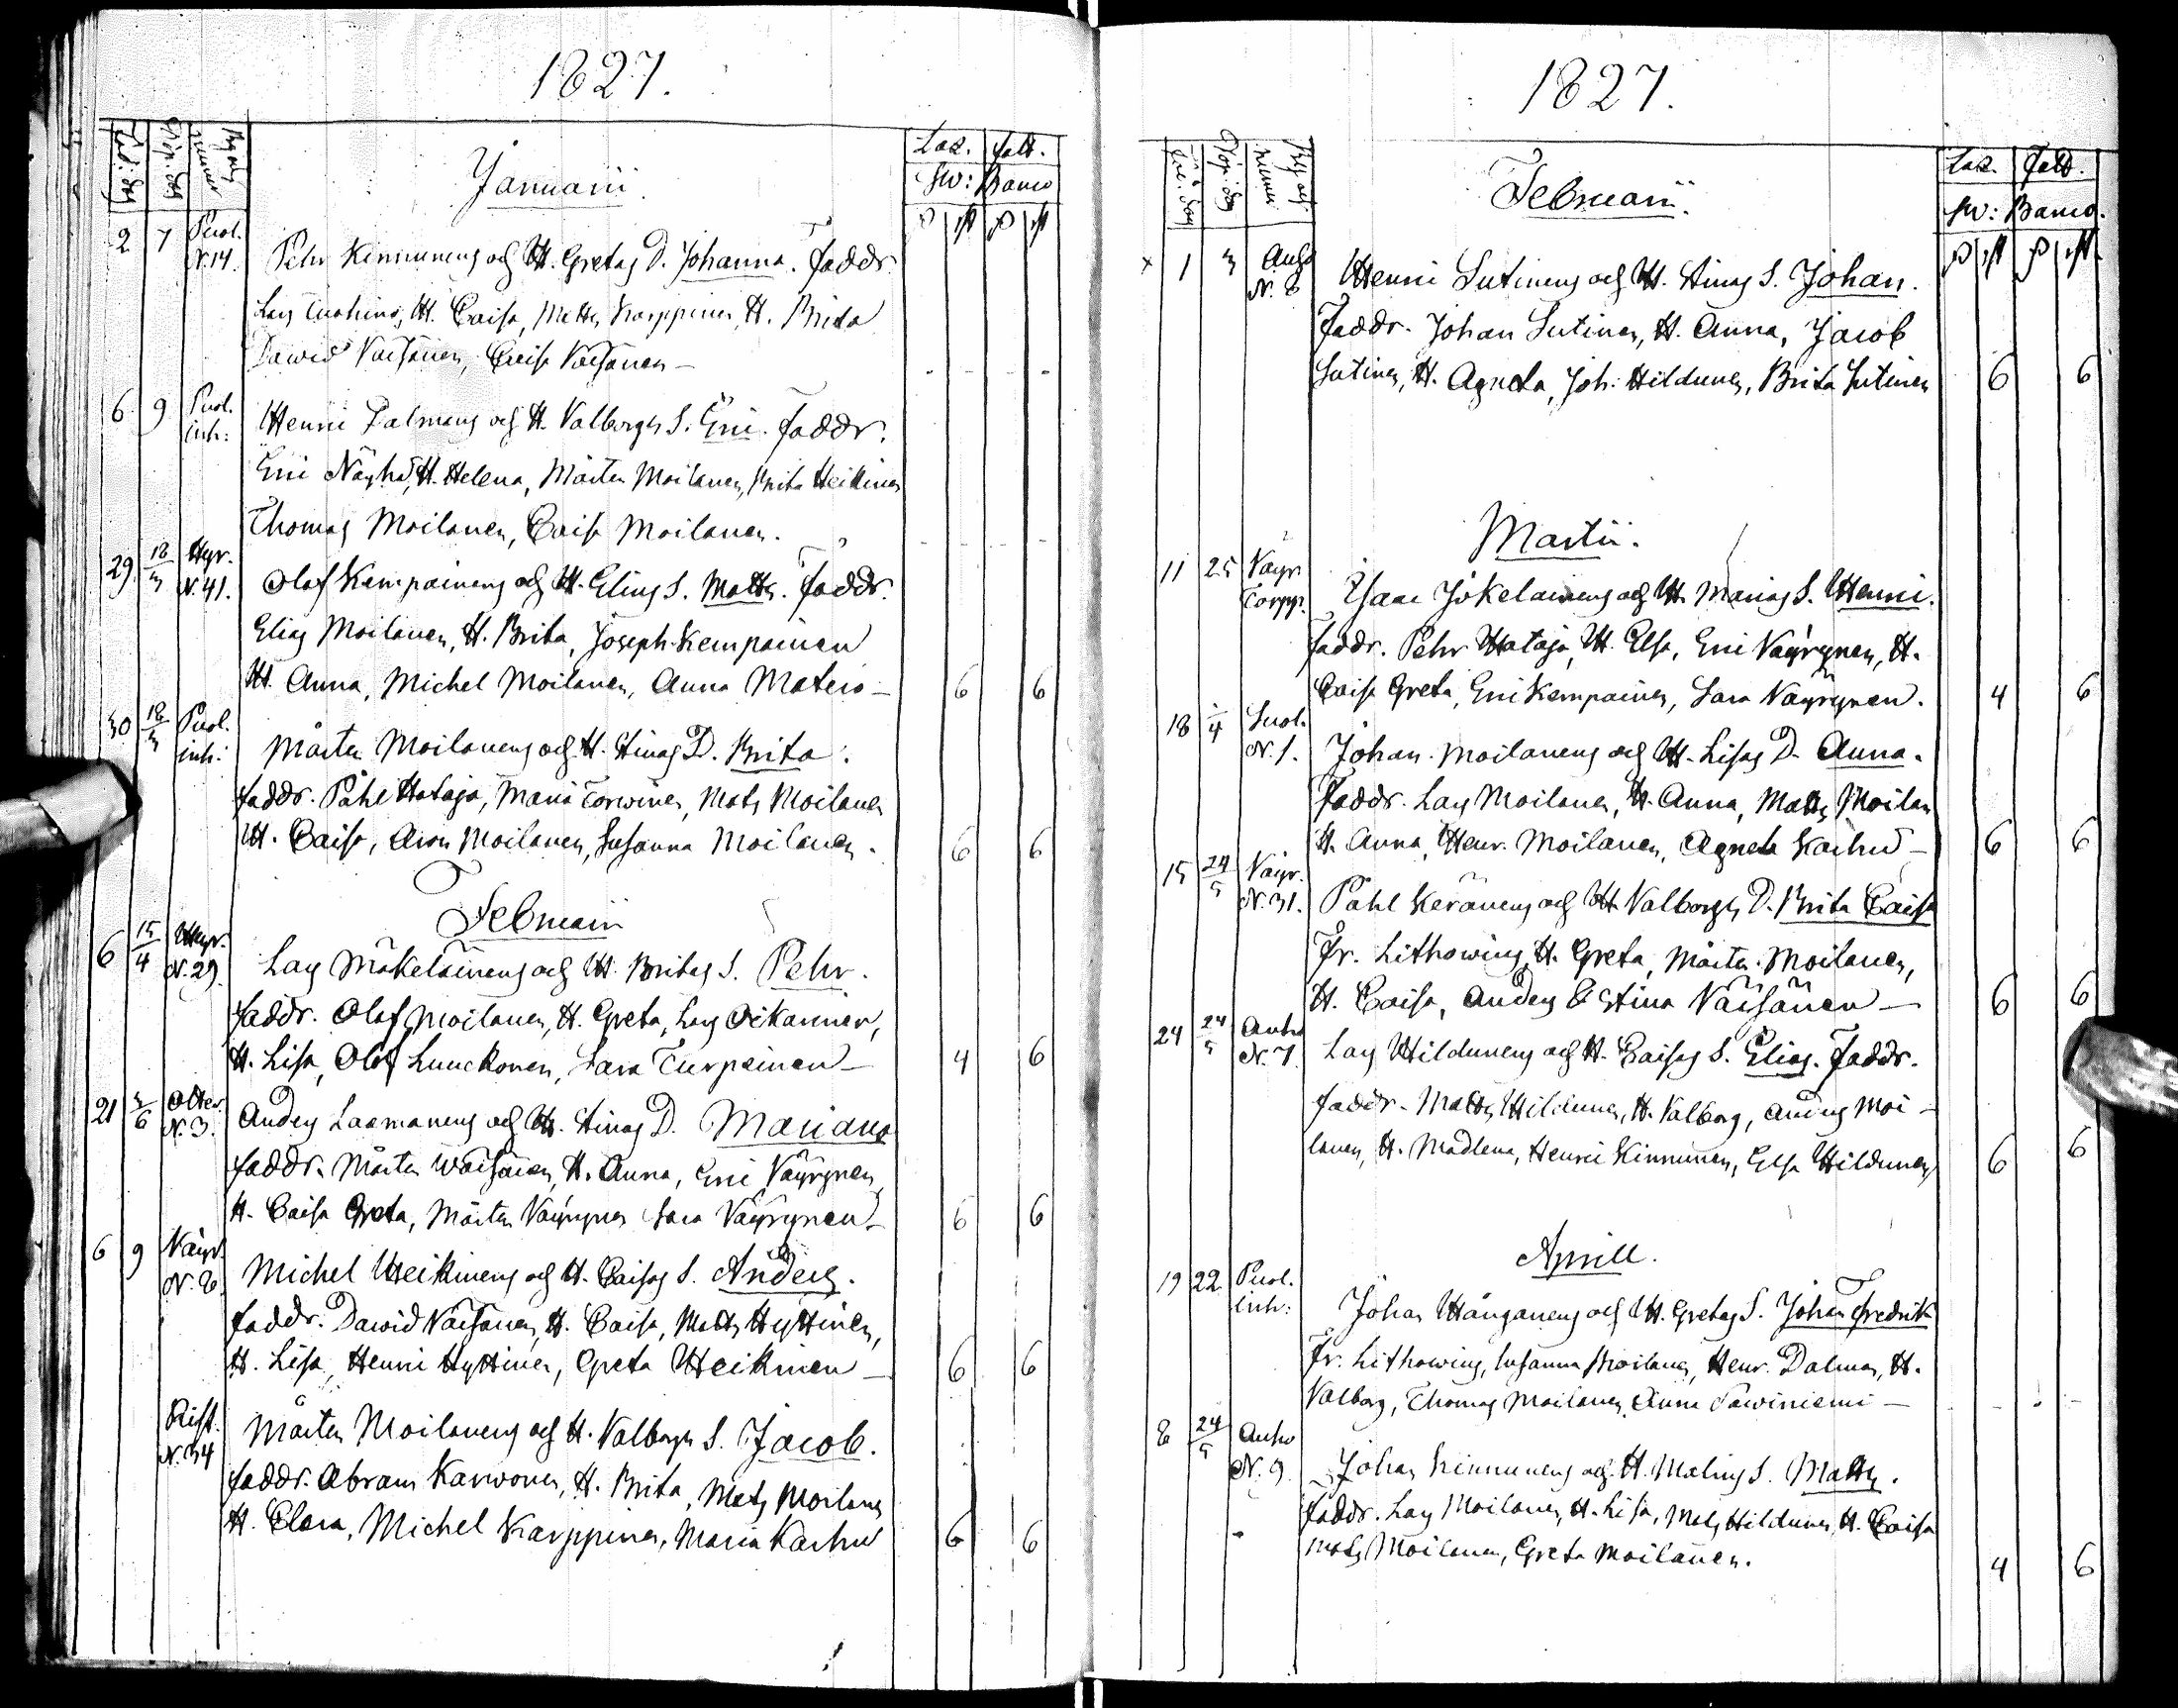 1827.
Föd. dag Döp. dag By och nummer
Laz. fatt.
Sw: Banco
Januarii
2 7 Puol. N. 14. Pehr Kinnunens och H. Gretas D. Johanna. Faddr.
Lars H. Caisa, Matts Karppinen, H. Brita
Dawid Väisänen, Caisa Väisänen –
6 9 Puol. inh: Henric Palmans och H. Valborgs S. Eric. Faddr.
Eric Näyhö, H. Helena, Mårten Moilanen, Brita Heikinen
Thomas Moilanen, Caisa Moilanen.
29 18/3 Hyr. N. 41. Olof Kempainens och H. Elins S. Matts. Faddr.
Elias Moilanen, H. Brita, Joseph Kempainen
H. Anna, Michel Moilanen, Anna Matero – 6 6
30 18/3 Puol. inh: Mårten Moilanens och H. Stinas D. Brita.
Faddr. Påhl Hataja, Maria Torwinen, Mats Moilanen
H. Caisa, Aron Moilanen, Susanna Moilanen. 6 6
Februarii
6 15/4 Hyr. N. 29. Lars Mäkeläinens och H. Britas S. Pehr.
Faddr. Olof Moilanen, H. Greta, Lars Oikarinen,
H. Lisa, Olof Luuckonen, Sara Turpeinen – 4 6
21 3/6 N. 3. Anders Laamanens och H. Stinas D. Mariana
Faddr. Mårten Wäisänen, H. Anna, Eric Väyrynen
H. Caisa Greta, Mårten Väyrynen Sara Väyrynen – 6 6
6 9 Väyr. N. 8. Michel Heikinens och H. Caisas S. Anders.
Faddr. Dawid Väisänen, H. Caisa, Matts Hyttinen,
H. Lisa, Henric Hyttinen, Greta Heikinen – 6 6
Rist. N. 34 Mårten Moilanens och H. Valborgs S. Jacob.
Faddr. Abram Karwonen, H. Brita, Mats Moilanen
H. Clara, Michel Karppinen, Maria Karhu 6 6
1827.
Föd. dag Döp. dag By och nummer
Laz. Fatt.
Sw: Banco.
Februarii.
× 1 3 N. 8 Henric Sutinens och H. Stinas S. Johan.
Faddr. Johan Sutinen, H. Anna, Jacob
Sutinen, H. Agneta, Joh. Hildunen, Brita Sutinen 6 6
Martii.
11 25 Väyr. Torpp. Isaac Jokelainens och H. Marias S. Henric.
Faddr. Pehr Hataja, H. Elsa, Eric Väyrynen, H.
Caisa Greta, Eric Kempainen, Sara Väyrynen. 4 6
18 1/4 N. 1. Johan Moilanens och H. Lisas D. Anna.
Faddr. Lars Moilanen, H. Anna, Matts Moilan
H. Anna, Henr. Moilanen, Agneta Karhu – 6 6
15 24/5 Väyr. N. 31. Påhl Keränens och H. Valborgs D. Brita Caisa
Fr. Lithowius, H. Greta, Mårten Moilanen,
H. Caisa, Anders & Stina Väisänen – 6 6
24 24/5 N. 7. Lars Hildunens och H. Caisas S. Elias. Faddr.
Faddr. Matts Hildunen, H. Valborg, Anders Moi-
lanen, H. Madlena, Henric Kinnunen, Elsa Hildunen 6 6
Aprill.
19 22 Puol. inh: Johan Hänganens och H. Gretas S. Johan Fredrik
Fr. Lithowius, Susanna Moilanen, Henr. Palman, H.
Valborg, Thomas Moilanen, Anna Sawiniemi –
8 24/5 N. 9. Johan Kinnunens och H. Malins S. Matts.
Faddr. Lars Moilanen, H. Lisa, Mats Hildunen, H. Caisa
Mats Moilanen, Greta Moilanen. 4 6